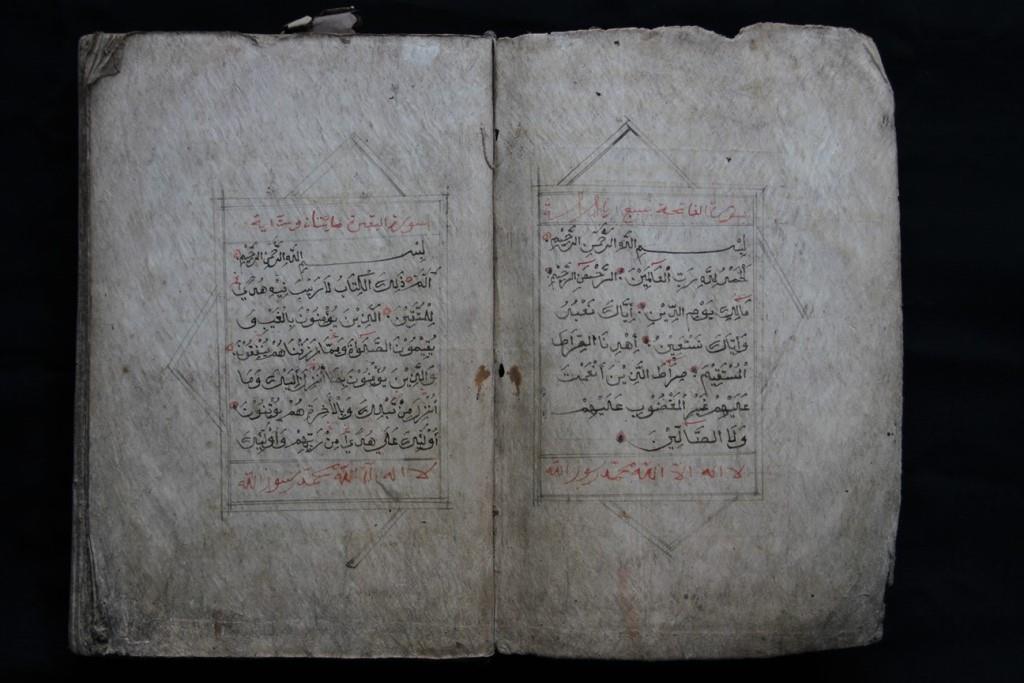 سورة الفاتحة سبع ايات
بِسْمِ اللَّهِ الرَّحْمَنِ الرَّحِيمِ
الْحَمْدُ لِلَّهِ رَبِّ الْعَالَمِينَ الرَّحْمَنِ الرَّحِيمِ
مَالِكِ يَوْمِ الدِّينِ إِيَّاكَ نَعْبُدُ
وَإِيَّاكَ نَسْتَعِينُ اهْدِنَا الصِّرَاطَ
الْمُسْتَقِيمَ صِرَاطَ الَّذِينَ أَنْعَمْتَ
عَلَيْهِمْ غَيْرِ الْمَغْضُوبِ عَلَيْهِمْ
وَلَا الضَّالِّينَ
لا اله الا الله محمد رسول الله
سورة البقرة مايتان و اية
بِسْمِ اللَّهِ الرَّحْمَنِ الرَّحِيمِ
الٓمٓ ذَلِكَ الْكِتَابُ لَا رَيْبَ فِيهِ هُدًى
لِلْمُتَّقِينَ الَّذِينَ يُؤْمِنُونَ بِالْغَيْبِ وَ
يُقِيمُونَ الصَّلَوٰةَ وَمِمَّا رَزَقْنَاهُمْ يُنْفِقُونَ
وَالَّذِينَ يُؤْمِنُونَ بِمَا أُنْزِلَ إِلَيْكَ وَمَا
أُنْزِلَ مِنْ قَبْلِكَ وَبِالْآخِرَةِ هُمْ يُوقِنُونَ
أُولَئِكَ عَلَى هُدًى مِنْ رَبِّهِمْ وَأُولَئِكَ
لا اله الا الله محمد رسول الله